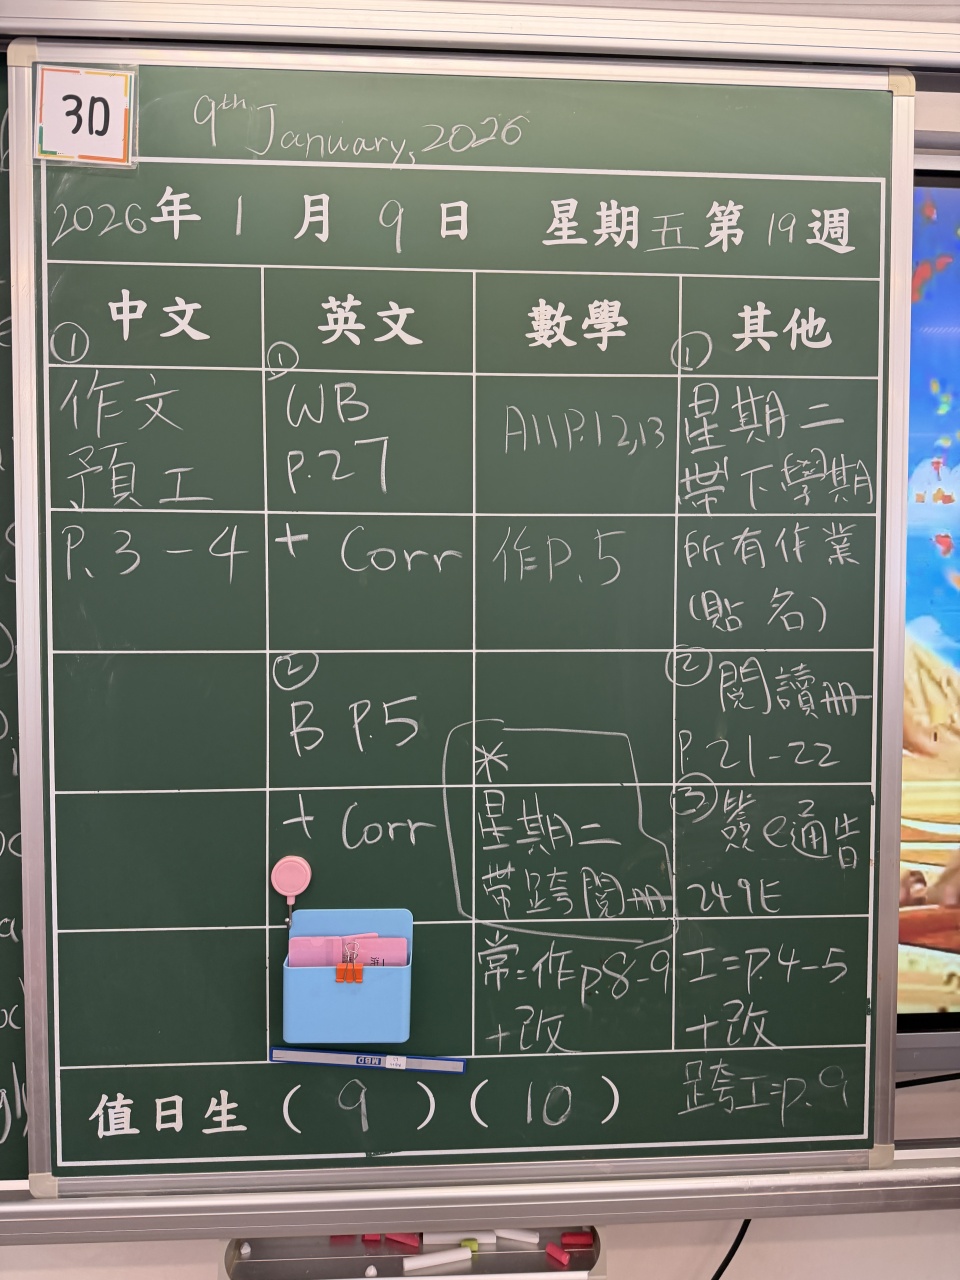 3D
9th January, 2026
2026年 1 月 9 日 星期五第19週
中文 英文 數學 其他
①
作文
預工
P.3-4
①
WB
P.27
+ Corr
②
B P.5
+ Corr
A11P.12,13
作P.5
*
星期二
帶跨閱冊
常=作p.8-9
+改
①
星期二
帶下學期
所有作業
(貼名)
② 閱讀冊
P.21-22
③ 簽e通告
249E
工=p.4-5
+改
跨工=p.9
值日生 ( 9 ) ( 10 )